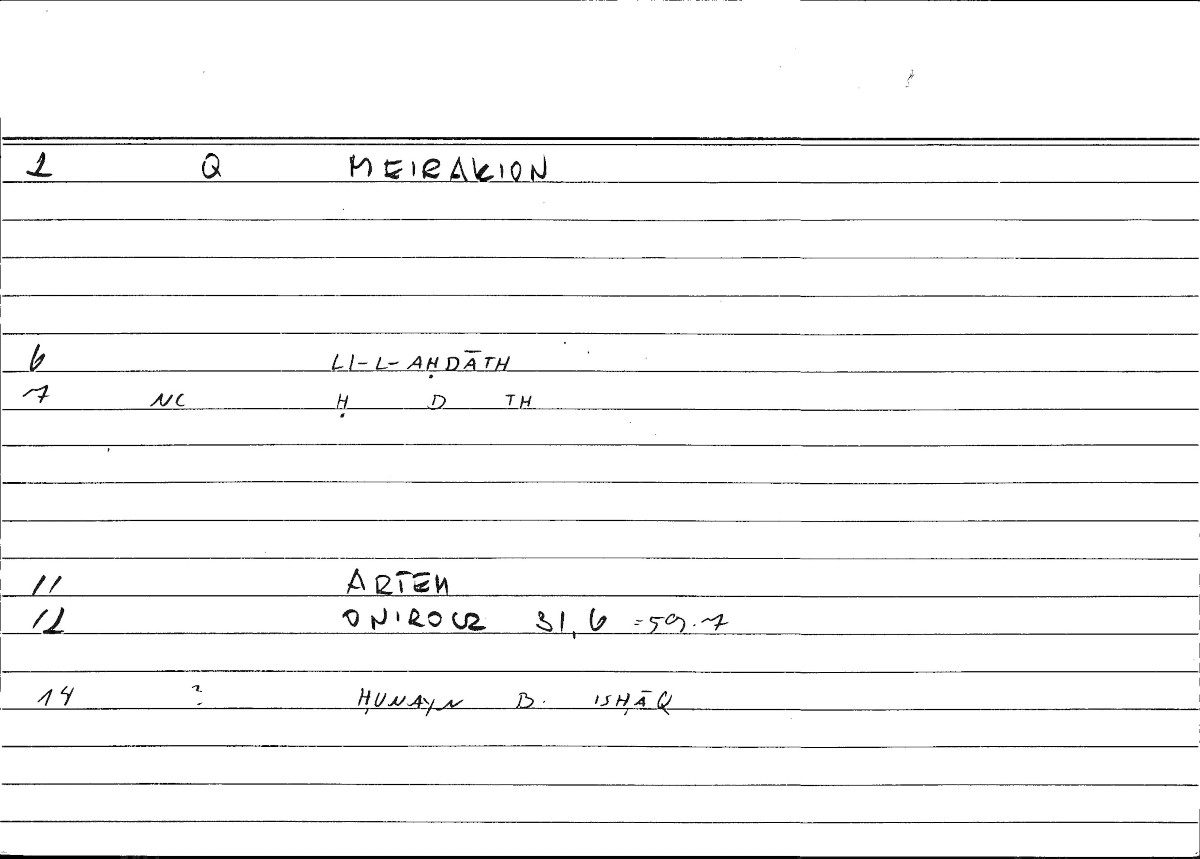 1 Q MEIRAKION
6 LI-L-AḤDĀTH
7 NC Ḥ D TH
11 ARTEM
12 ONIROCR 31, 6 =59.7
14 ? ḤUNAYN B. ISḤĀQ